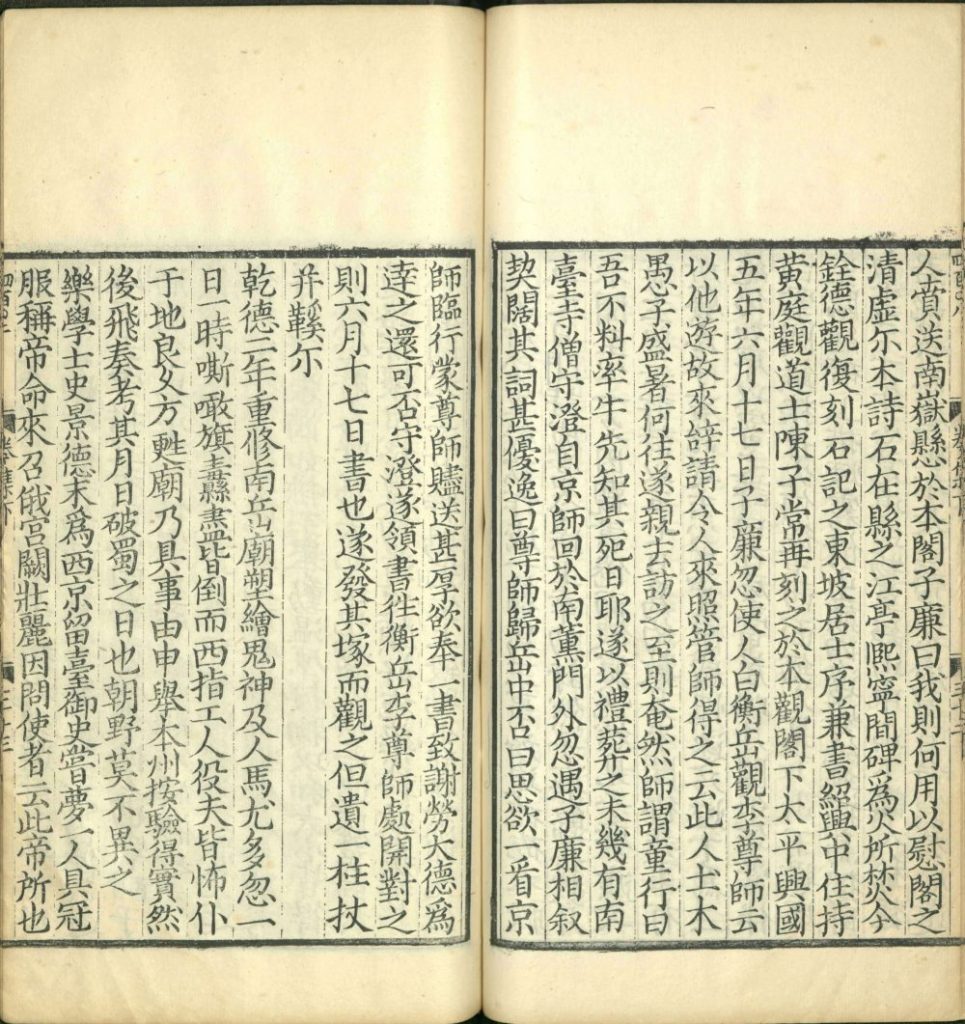 人賫送南嶽懸於本閣子廉曰我則何用以慰閣之
清虚尓本詩石在縣之江亭熈寧間碑爲火所焚今
銓德觀復刻石記之東坡居士序兼書紹興中住持
黄庭觀道士陳子常再刻之於本觀閣下太平興國
五年六月十七日子廉忽使人白衡岳觀李尊師云
以他遊故來辝請令人來照管師得之云此人土木
愚子盛暑何往遂親去訪之至則奄然師謂童行曰
吾不料牽牛先知其死日耶遂以禮葬之未幾有南
臺寺僧守澄自京師回於南薰門外忽遇子廉相叙
契闊其詞甚優逸曰尊師歸岳中否曰思欲一看京
師臨行蒙尊師贐送甚厚欲奉一書致謝勞大德爲
逹之還可否守澄遂領書徃衡岳李尊師處開對之
則六月十七日書也遂發其塚而觀之但遺一柱杖
并鞵尓
乾德二年重修南岳廟塑繪鬼神及人馬尤多忽一
日一時嘶噉旗纛盡皆倒而西指工人役夫皆怖仆
于地良久方甦廟乃具事由申舉本州按驗得實然
後飛奏考其月日破蜀之日也朝野莫不異之
樂學士史景德末爲西京留臺御史嘗夢一人具冠
服稱帝命來召俄宫闕壯麗因問使者云此帝所也